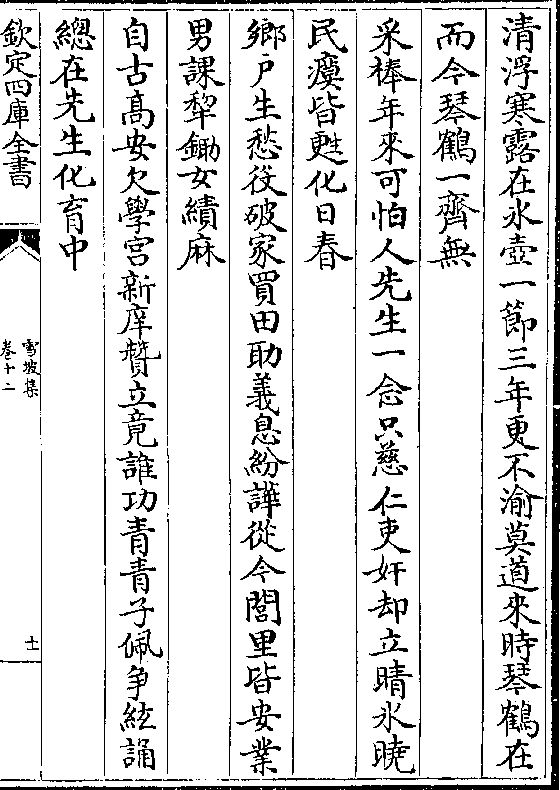 清浮寒露在氷壺一節三年更不渝莫道來時琴鶴在
而今琴鶴一齊無
采棒年來可怕人先生一念只慈仁吏奸却立晴氷曉
民瘼皆甦化日春
鄉戸生愁役破家買田助義息紛譁從今閭里皆安業
男課犂鋤女績麻
自古髙安欠學宫新庠贊立竟誰功青青子佩争絃誦
總在先生化育中
欽定四庫全書
雪坡集
卷十二
十